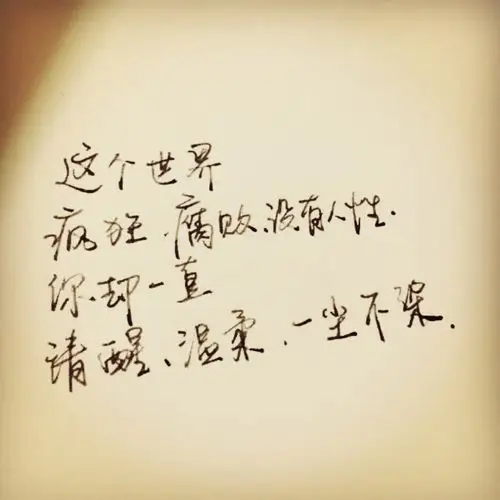 这个世界
疯狂、腐败、没有人性.
你、却一直
清醒、温柔、一尘不染.